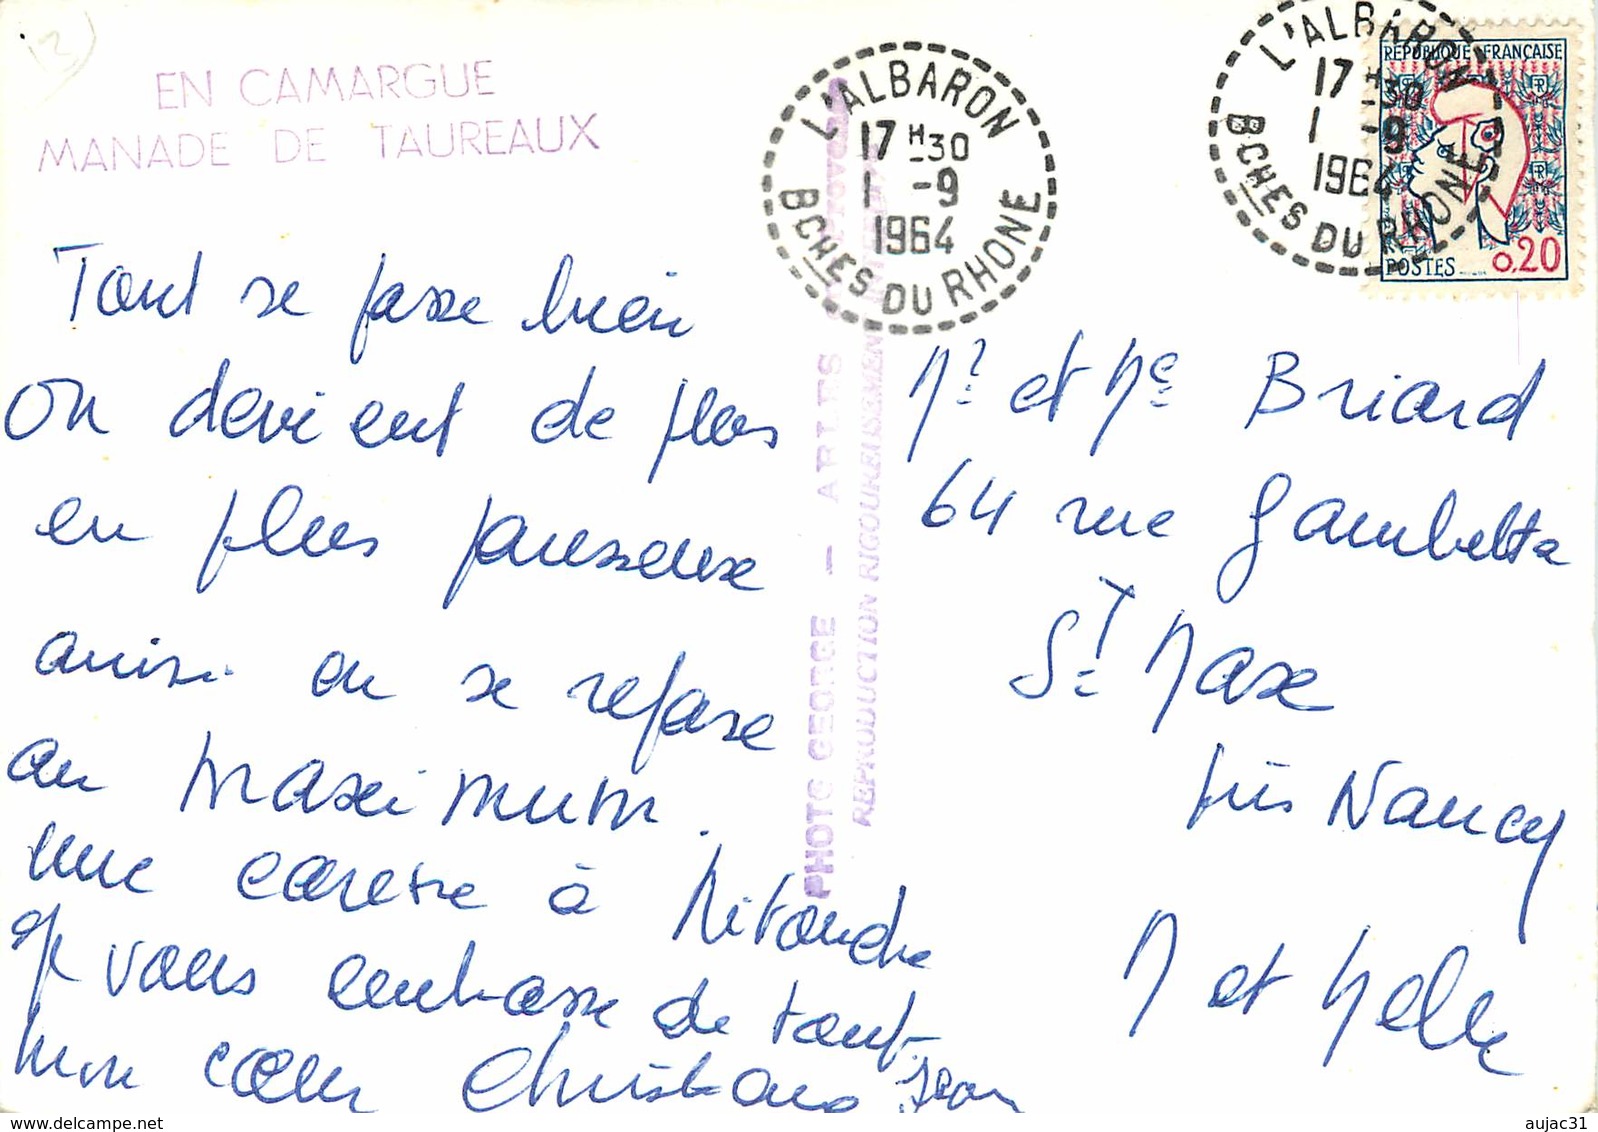 EN CAMARGUE
MANADE DE TAUREAUX
L'ALBARON
17 H 30
1 -9
1964
BCHES DU RHONE
L'ALBARON
17 H 30
1 -9
1964
BCHES DU RHONE
REPUBLIQUE FRANCAISE
POSTES
0,20
PHOTO GEORGE - ARLES
REPRODUCTION RIGOUREUSEMENT INTERDITE
Tout se passe bien
on devient de plus
en plus paresseuse
ainsi on se refose
au maximum.
une caresse à Mitouche
je vous embrasse de tout
mon cœur Christiane Jean
Mr et Me Briard
64 rue Gambetta
St Maxe
près Nancy
M et Melle
aujac31